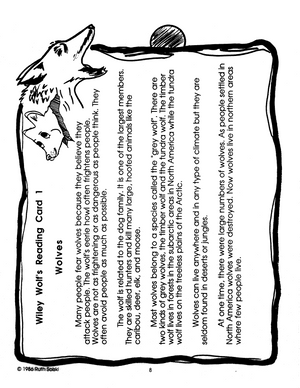 Wiley Wolf's Reading Card 1
Wolves
Many people fear wolves because they believe they
attack people. The wolf's eerie howl often frightens people.
Wolves are not as frightening or as dangerous as people think. They
often avoid people as much as possible.
The wolf is related to the dog family. It is one of the largest members.
They are skilled hunters and kill many large, hoofed animals like the
caribou, deer, elk, and moose.
Most wolves belong to a species called the "grey wolf". There are
two kinds of grey wolves, the timber wolf and the tundra wolf. The timber
wolf lives in forests in the subarctic areas in North America while the tundra
wolf lives on the treeless plains of the Arctic.
Wolves can live anywhere and in any type of climate but they are
seldom found in deserts or jungles.
At one time, there were large numbers of wolves. As people settled in
North America wolves were destroyed. Now wolves live in northern areas
where few people live.
© 1986 Ruth Solski
8